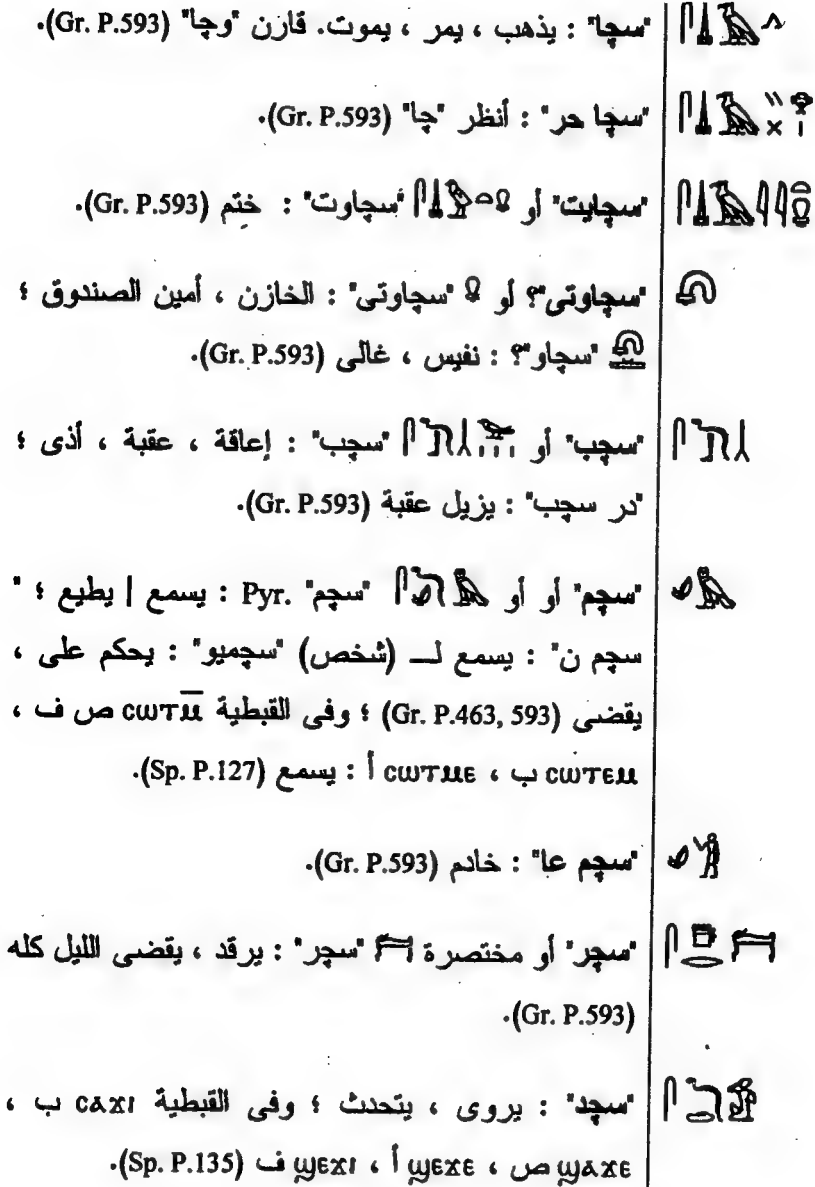 "سچا" : يذهب ، يمر ، يموت. قارن "وچا" (Gr. P.593)۰
"سچا حر" : أنظر "چا" (Gr. P.593)۰
"سچايت" أو "سچاوت" : ختم (Gr. P.593)۰
"سچاوتى"؟ أو "سچاوتى" : الخازن ، أمين الصندوق ؛
"سچاو"؟ : نفيس ، غالى (Gr. P.593)۰
"سچب" أو "سچب" : إعاقة ، عقبة ، أذى ؛
"در سچب" : يزيل عقبة (Gr. P.593)۰
"سچم" أو أو "سچم" Pyr. : يسمع | يطيع ؛ "
سچم ن" : يسمع لـــ (شخص) "سچميو" : يحكم على ،
يقضى (Gr. P.463, 593) ؛ وفى القبطية ⲥⲱⲧⲙ̅ ص ف ،
ⲥⲱⲧⲉⲙ ب ، ⲥⲱⲧⲙⲉ أ : يسمع (Sp. P.127)۰
"سچم عا" : خادم (Gr. P.593)۰
"سچر" أو مختصرة "سچر" : يرقد ، يقضى الليل كله
(Gr. P.593)۰
"سچد" : يروى ، يتحدث ؛ وفى القبطية ⲥⲁϫⲓ ب ،
ϣⲁϫⲉ ص ، ϣⲉϫⲉ أ ، ϣⲉϫⲓ ف (Sp. P.135)۰